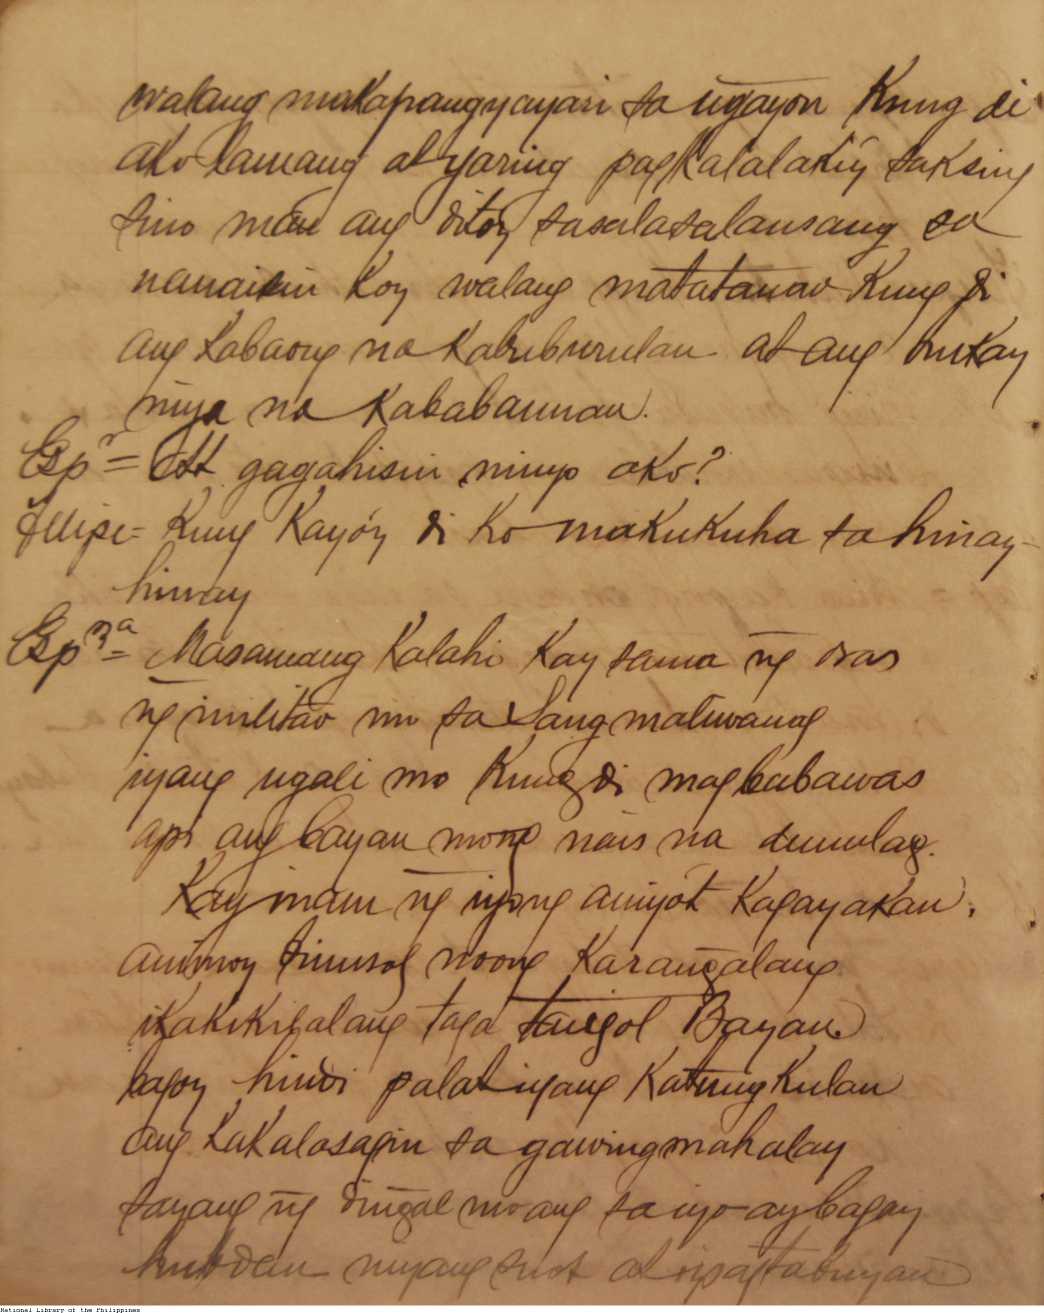 walang makapangyayari sa ngayon Kung di
ako lamang at yaring pagkalalakiy saksing
sino man ang ditoy sasalasalansang sa
nanaisin Koy walang matatanao Kung di
ang Kabaong na Kabubururulan at ang hukay
niya na Kababaunan.
Espª = At gagahisin ninyo ako?
Fellipe = Kung Kayóy di Ko makukuha sa hinay-
hinay
Espª = Masamang Kalahi Kay sama ng oras
ng militao mo sa Sang maliwanag
iyang ugali mo Kung di magbabawas
api ang bayan mong nais na dumulag.
Kay inam ng iyong aniyót Kagayakan.
animoy sinusol noong Karangalang
iKakikigalang taga tangol Bayan
bagoy hindi palat iyang Katungkulan
ang KaKalasagin sa gawing mahalay
sayang ng dingal mo ang sa iyo ay bagay
hubdan niyang suot at ipagtabuyan